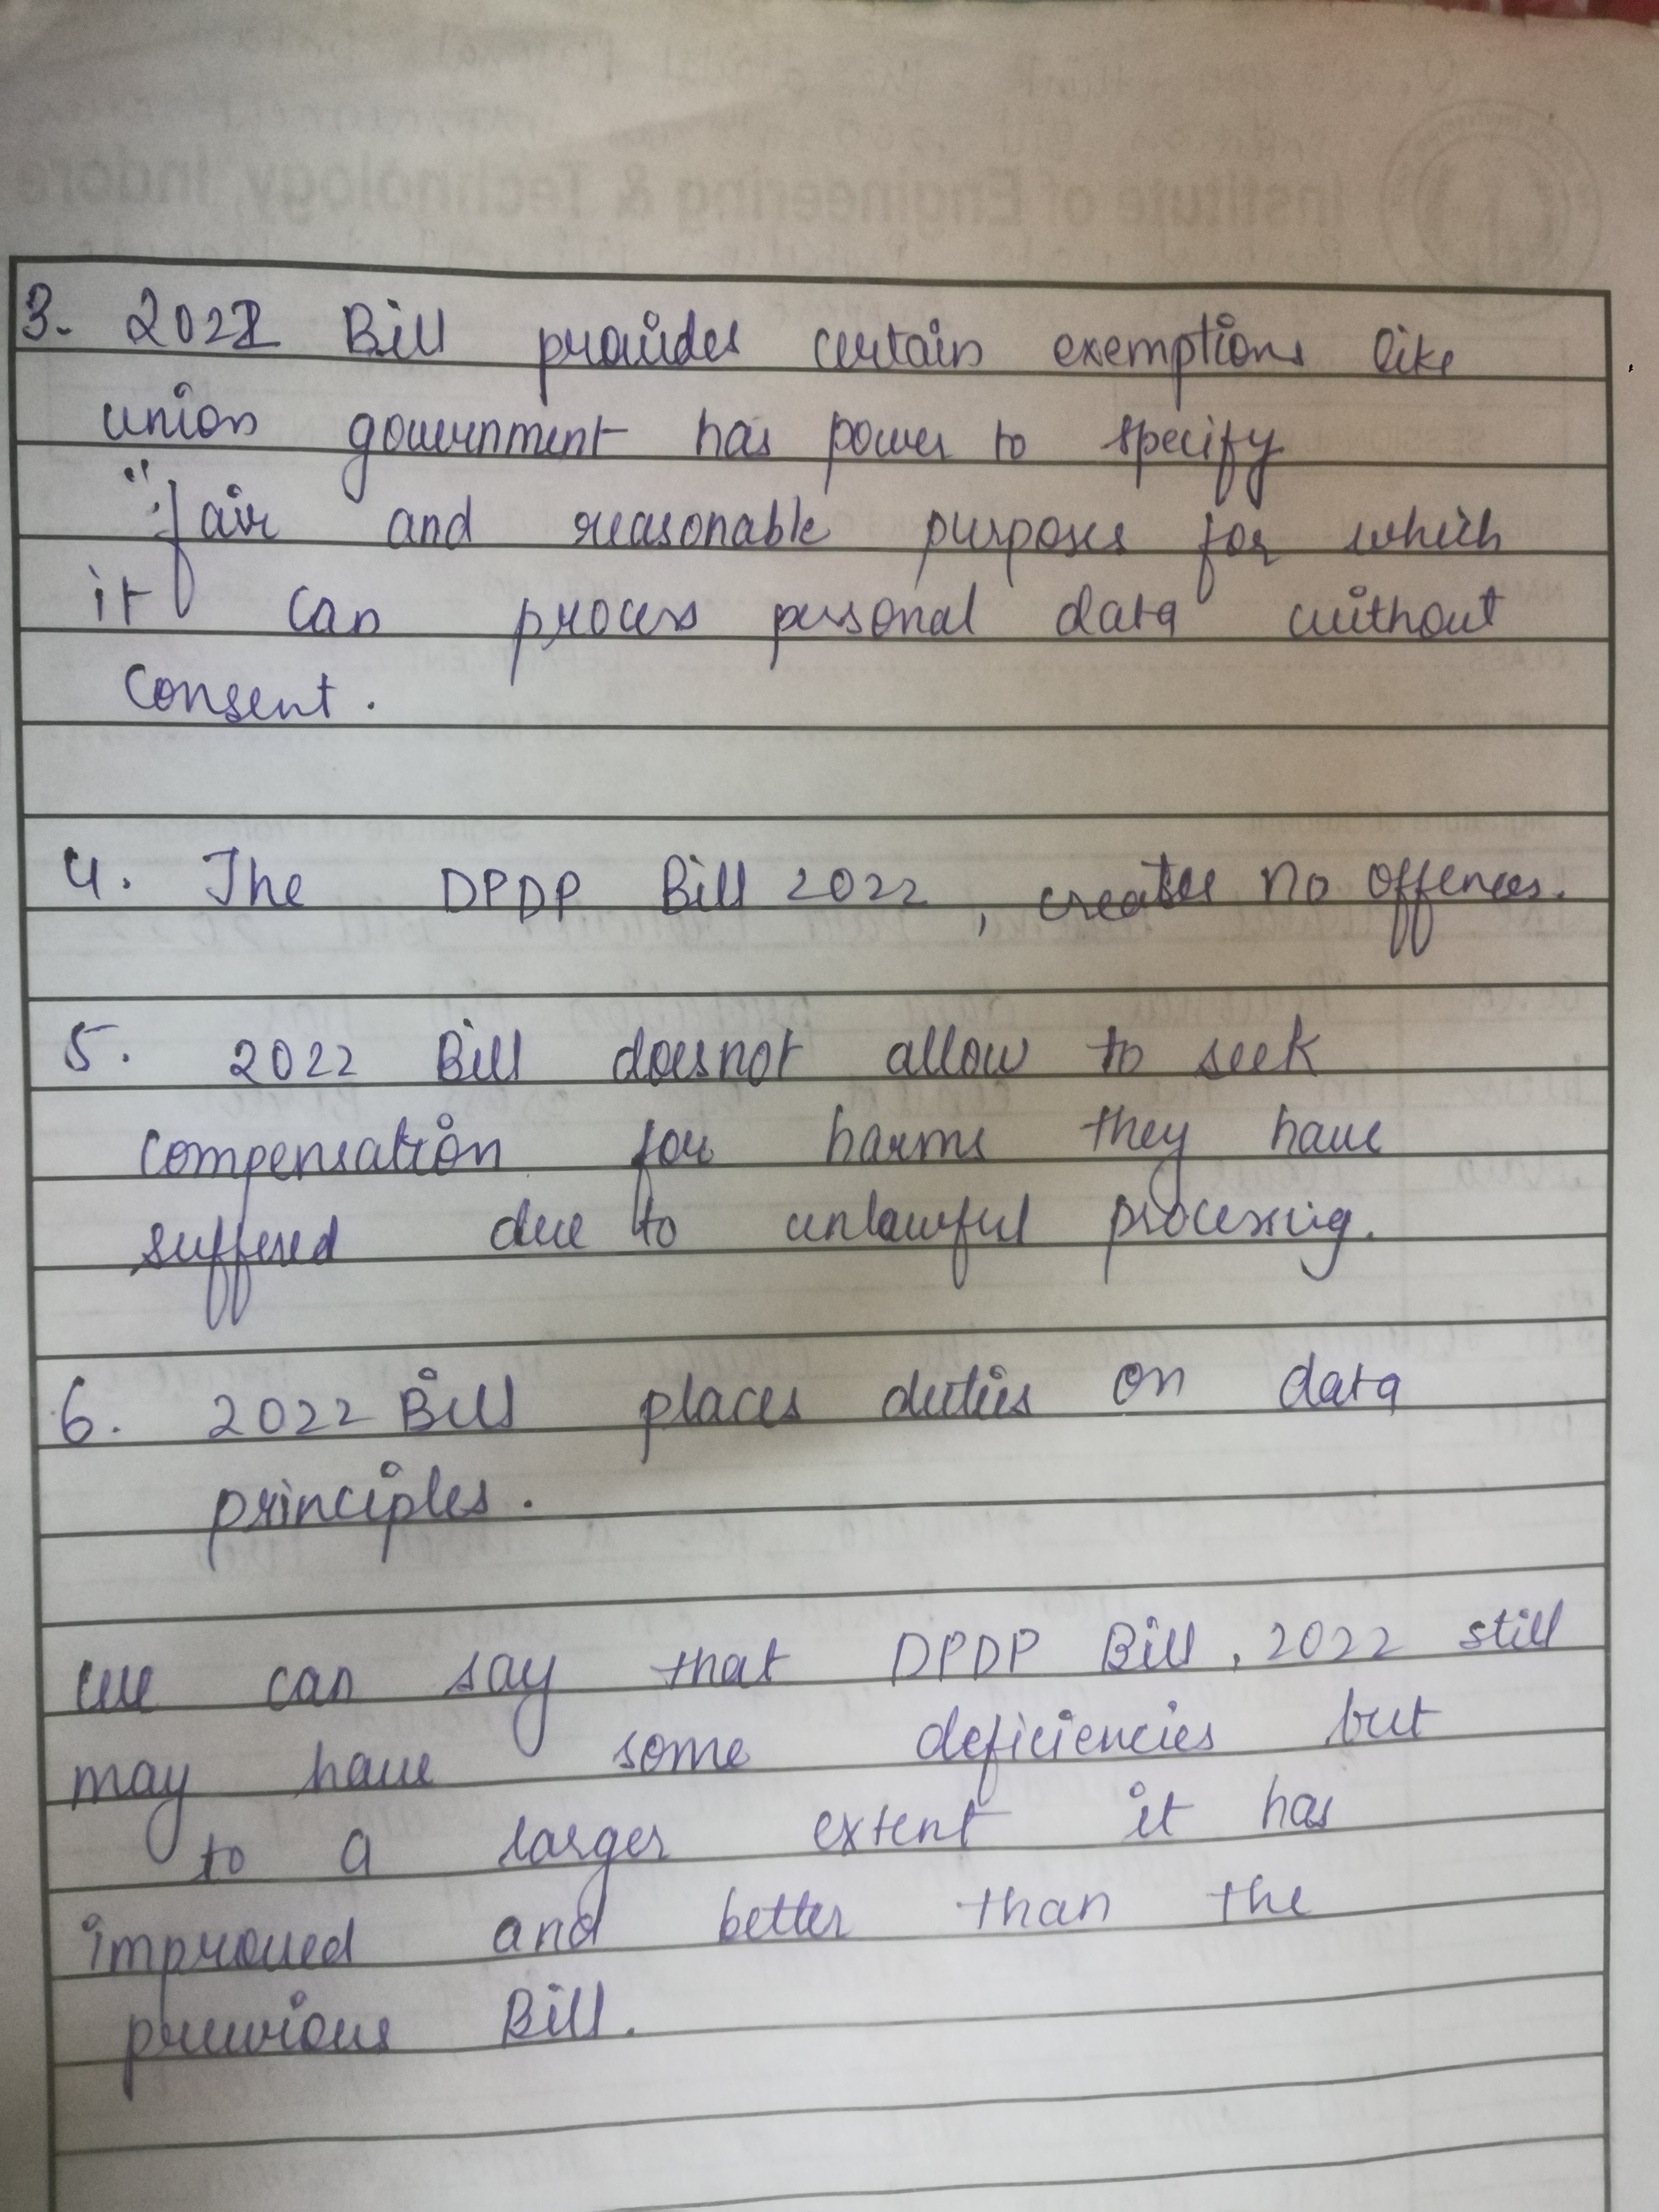 Institute of Engineering & Technology, Indore
3. 2022 Bill provides certain exemptions like
union government has power to specify
"fair and reasonable purposes for which
it can process personal data without
consent.
4. The DPDP Bill 2022, creates no offences.
5. 2022 Bill doesnot allow to seek
compensation for harms they have
suffered due to unlawful processing.
6. 2022 Bill places duties on data
principles.
we can say that DPDP Bill, 2022 still
may have some deficiencies but
to a larger extent it has
improved and better than the
previous Bill.